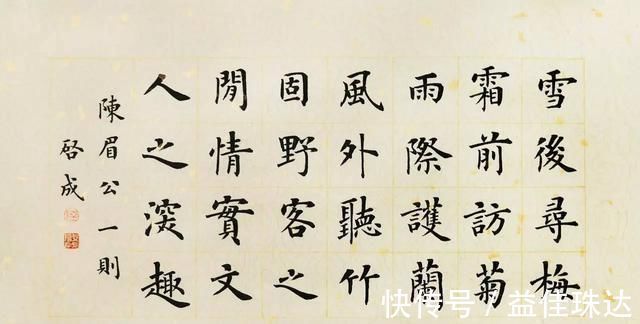 雪後尋梅
霜前訪菊
雨際護蘭
風外聽竹
固野客之
閒情實文
人之深趣
陳眉公一則
啓成
快传号/益佳珠达